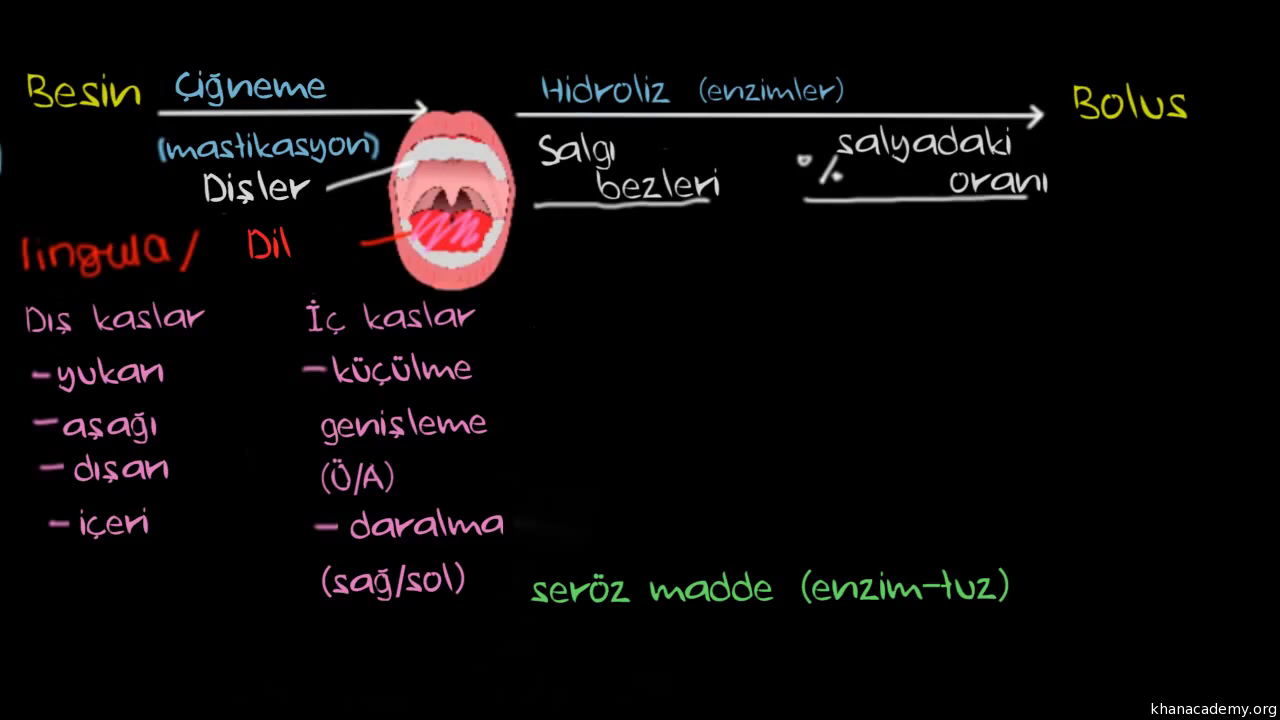 Besin Çiğneme Hidroliz (enzimler) Bolus
(mastikasyon) Salgı % salyadaki
Dişler bezleri oranı
lingula/ Dil
Dış kaslar İç kaslar
-yukarı -küçülme
-aşağı genişleme
-dışarı (Ö/A)
-içeri -daralma
(sağ/sol) seröz madde (enzim-tuz)
khanacademy.org